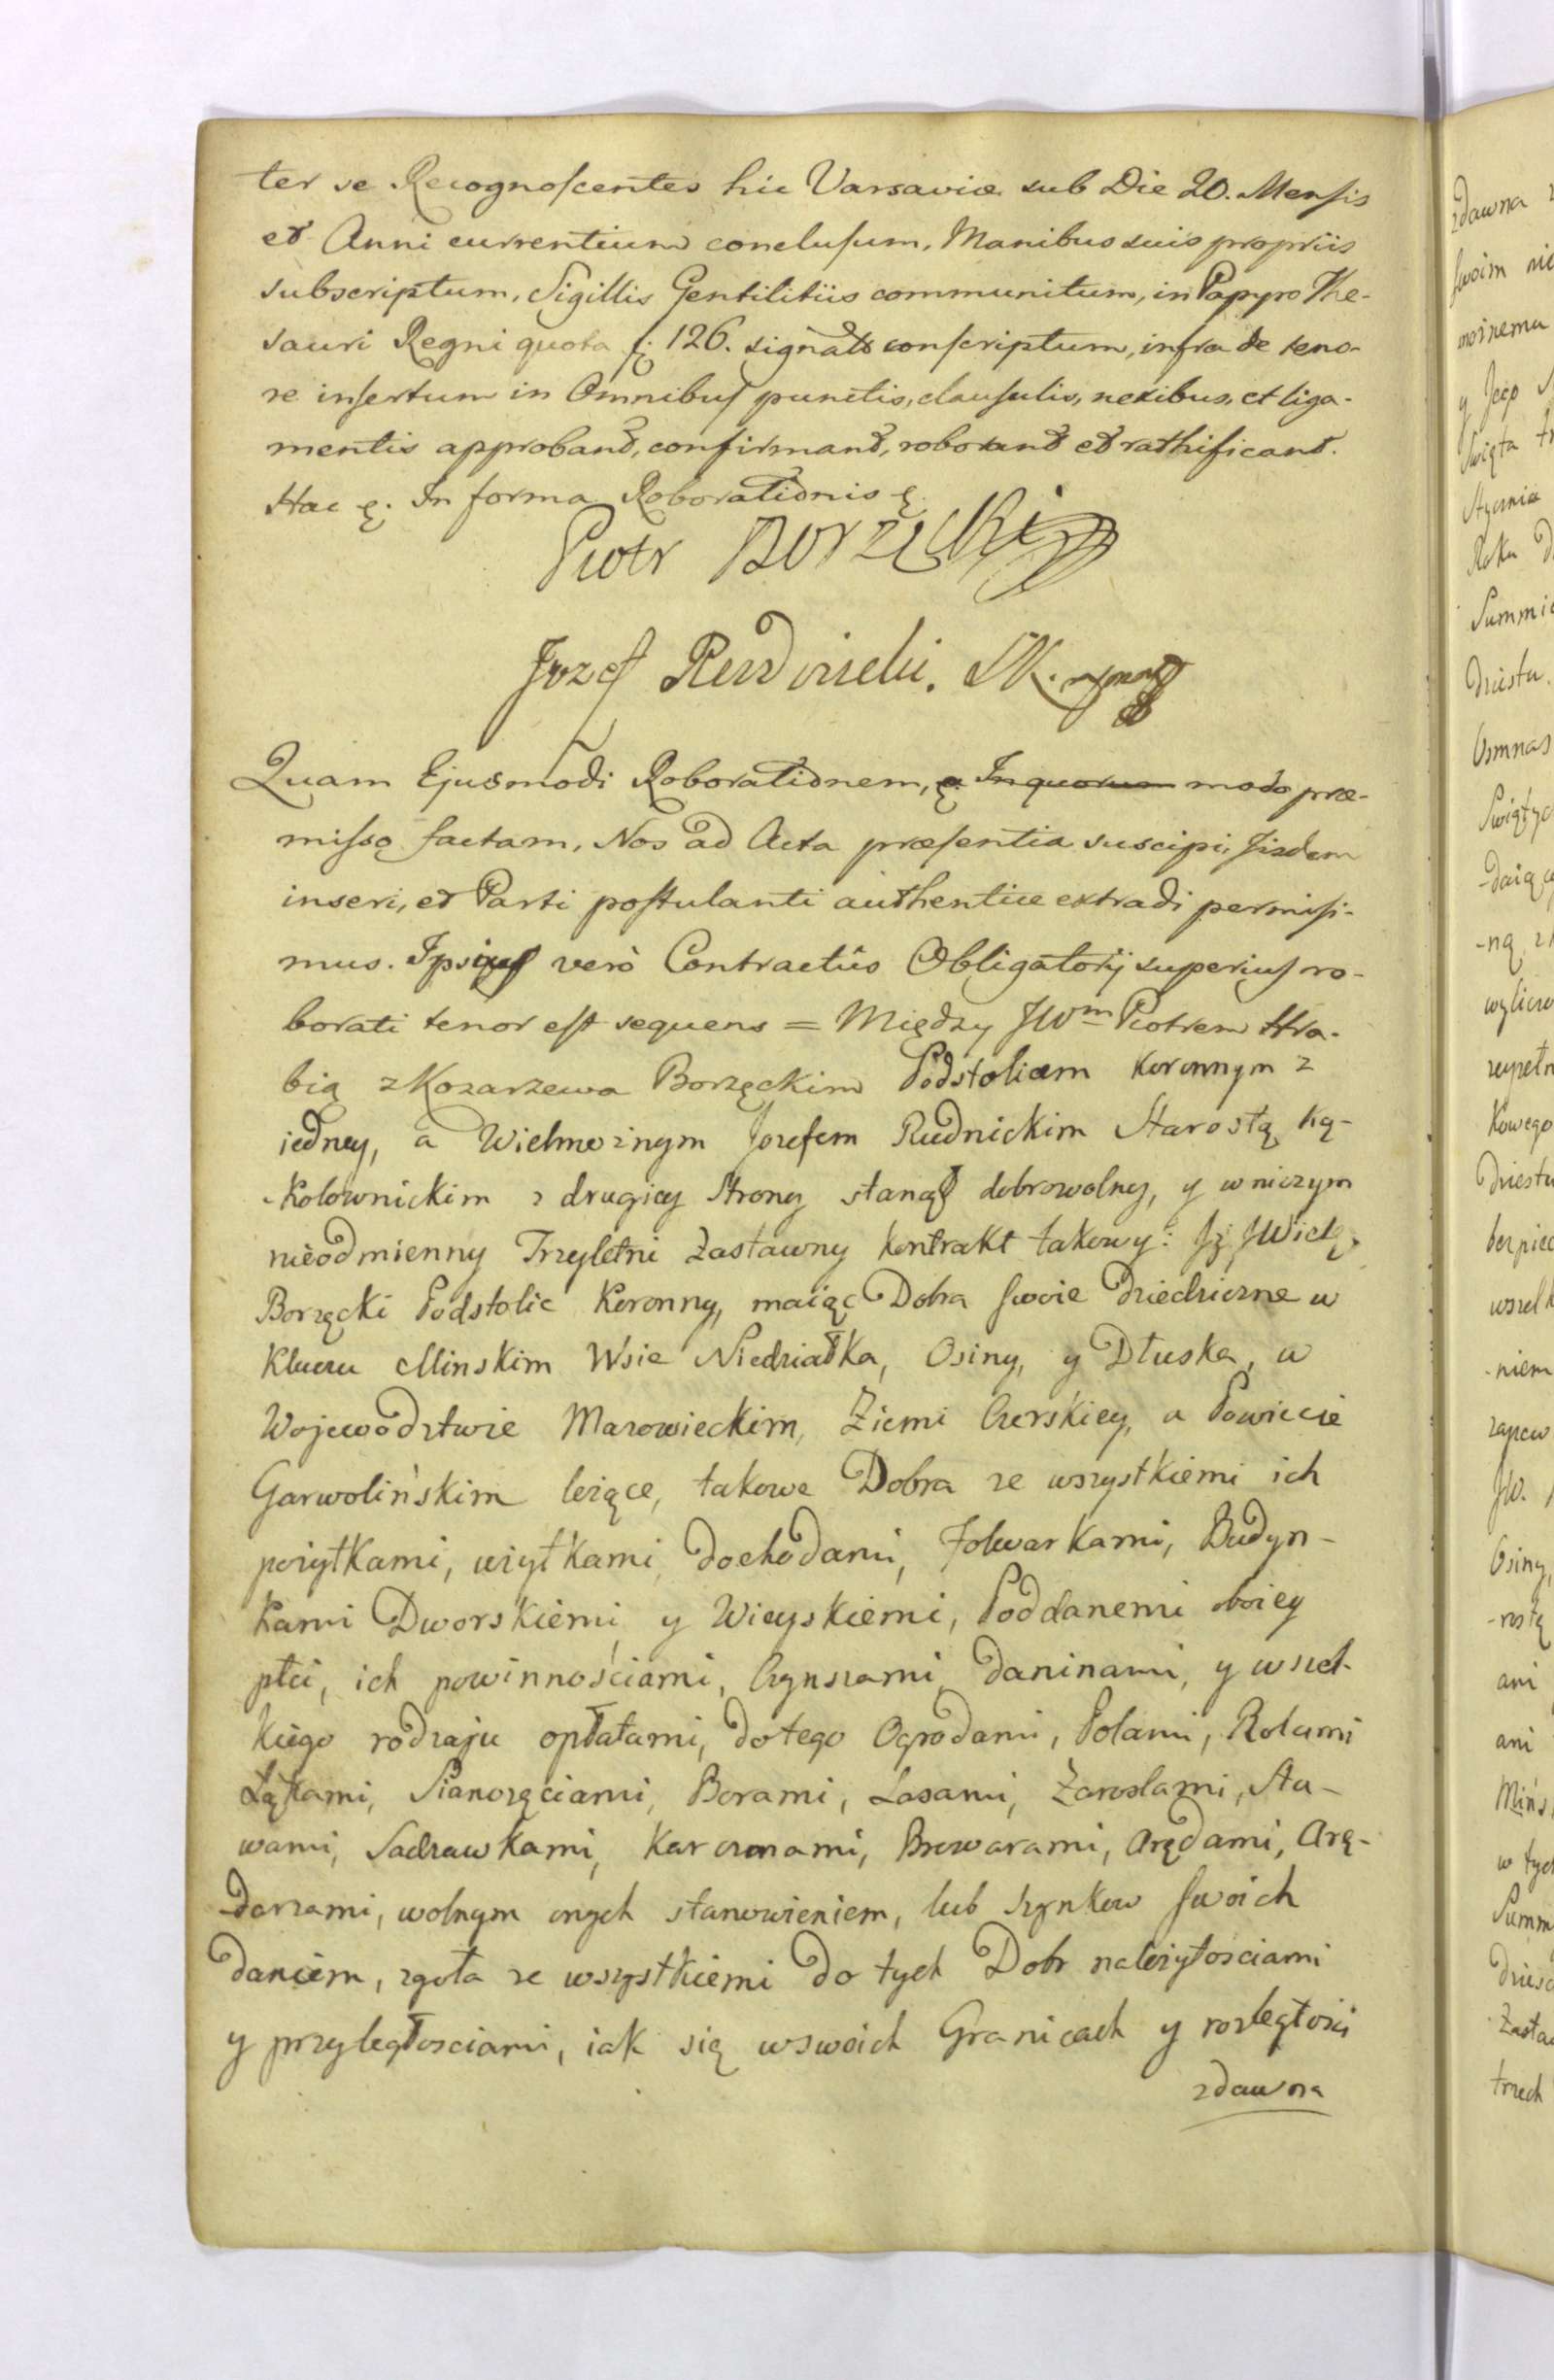 ter se Recognoscentes hic Varsaviæ sub Die 20. Mensis
et Anni currentium conclusum, Manibus suis propriis
subscriptum, Sigillis Gentilitiis communitum, in Papyro The-
sauri Regni quota f. 126. signato conscriptum, infra de teno-
re insertum in Omnibus punctis, clausulis, nexibus, et liga-
mentis approbant, confirmant, roborant et rathificant.
Hac In forma Roborationis
Piotr Borzęcki
Jozef Rudnicki. SK.
Quam Ejusmodi Roborationem, In quorum modo præ-
misso factam, Nos ad Acta præsentia suscipi, iisdem
inseri, et Parti postulanti authentice extradi permisi-
mus. Ipsius verò Contractûs Obligatorij superius ro-
borati tenor est sequens = Między JWm Piotrem Hra-
bią z Kozarzewa Borzęckim Podstolicem Koronnym z
iedney, a Wielmożnym Jozefem Rudnickim Starostą Ką-
-Kolownickim z drugiey Strony stanął dobrowolny, y w niczym
nieodmienny Trzyletni Zastawny Kontrakt takowy: Jż JWielg.
Borzęcki Podstolic Koronny, maiąc Dobra swoie Dziedziczne w
Kluczu Minskim Wsie Niedziałka, Osiny, y Dłuska, w
Wojewodztwie Mazowieckim, Ziemi Czerskiey, a Powiecie
Garwolińskim leżące, takowe Dobra ze wszystkiemi ich
pożytkami, użytkami, dochodami, Folwarkami, Budyn-
kami Dworskiemi, y Wieyskiemi, Poddanemi oboiey
płci, ich powinnościami, Czynszami, daninami, y wszel-
kiego rodzaju opłatami, do tego Ogrodami, Polami, Rolami
Łąkami, Sianorzęciami, Borami, Lasami, Zaroslami, Sta-
wami, Sadzawkami, Karczmami, Browarami, Arędami, Arę-
-darzami, wolnym onych stanowieniem, lub szynkow swoich
daniem, zgoła ze wszystkiemi do tych Dobr należytosciami
y przyległosciami, iak się w swoich Granicach y rozległości
zdawna